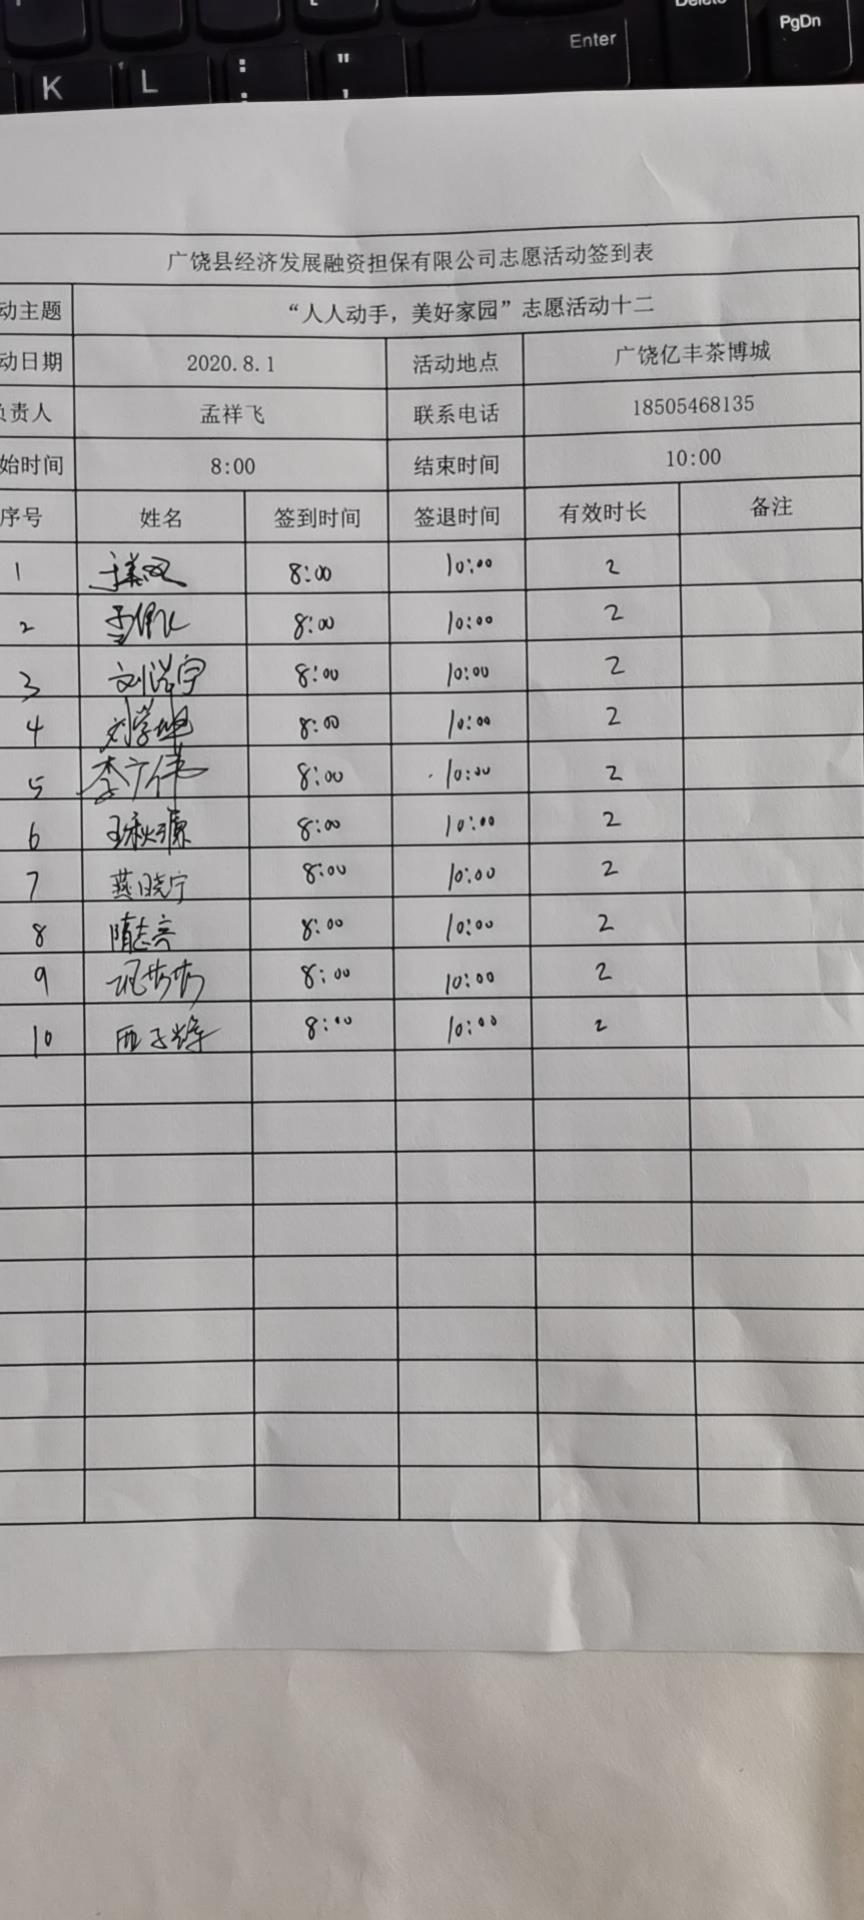 Delete
PgDn
Enter
K L : ; " '
广饶县经济发展融资担保有限公司志愿活动签到表
动主题 “人人动手，美好家园”志愿活动十二
动日期 2020.8.1 活动地点 广饶亿丰茶博城
负责人 孟祥飞 联系电话 18505468135
始时间 8:00 结束时间 10:00
序号 姓名 签到时间 签退时间 有效时长 备注
1 8:00 10:00 2
2 8:00 10:00 2
3 刘浩宇 8:00 10:00 2
4 刘学坤 8:00 10:00 2
5 李广伟 8:00 10:00 2
6 王秋源 8:00 10:00 2
7 燕晓宁 8:00 10:00 2
8 隋志亮 8:00 10:00 2
9 8:00 10:00 2
10 8:00 10:00 2